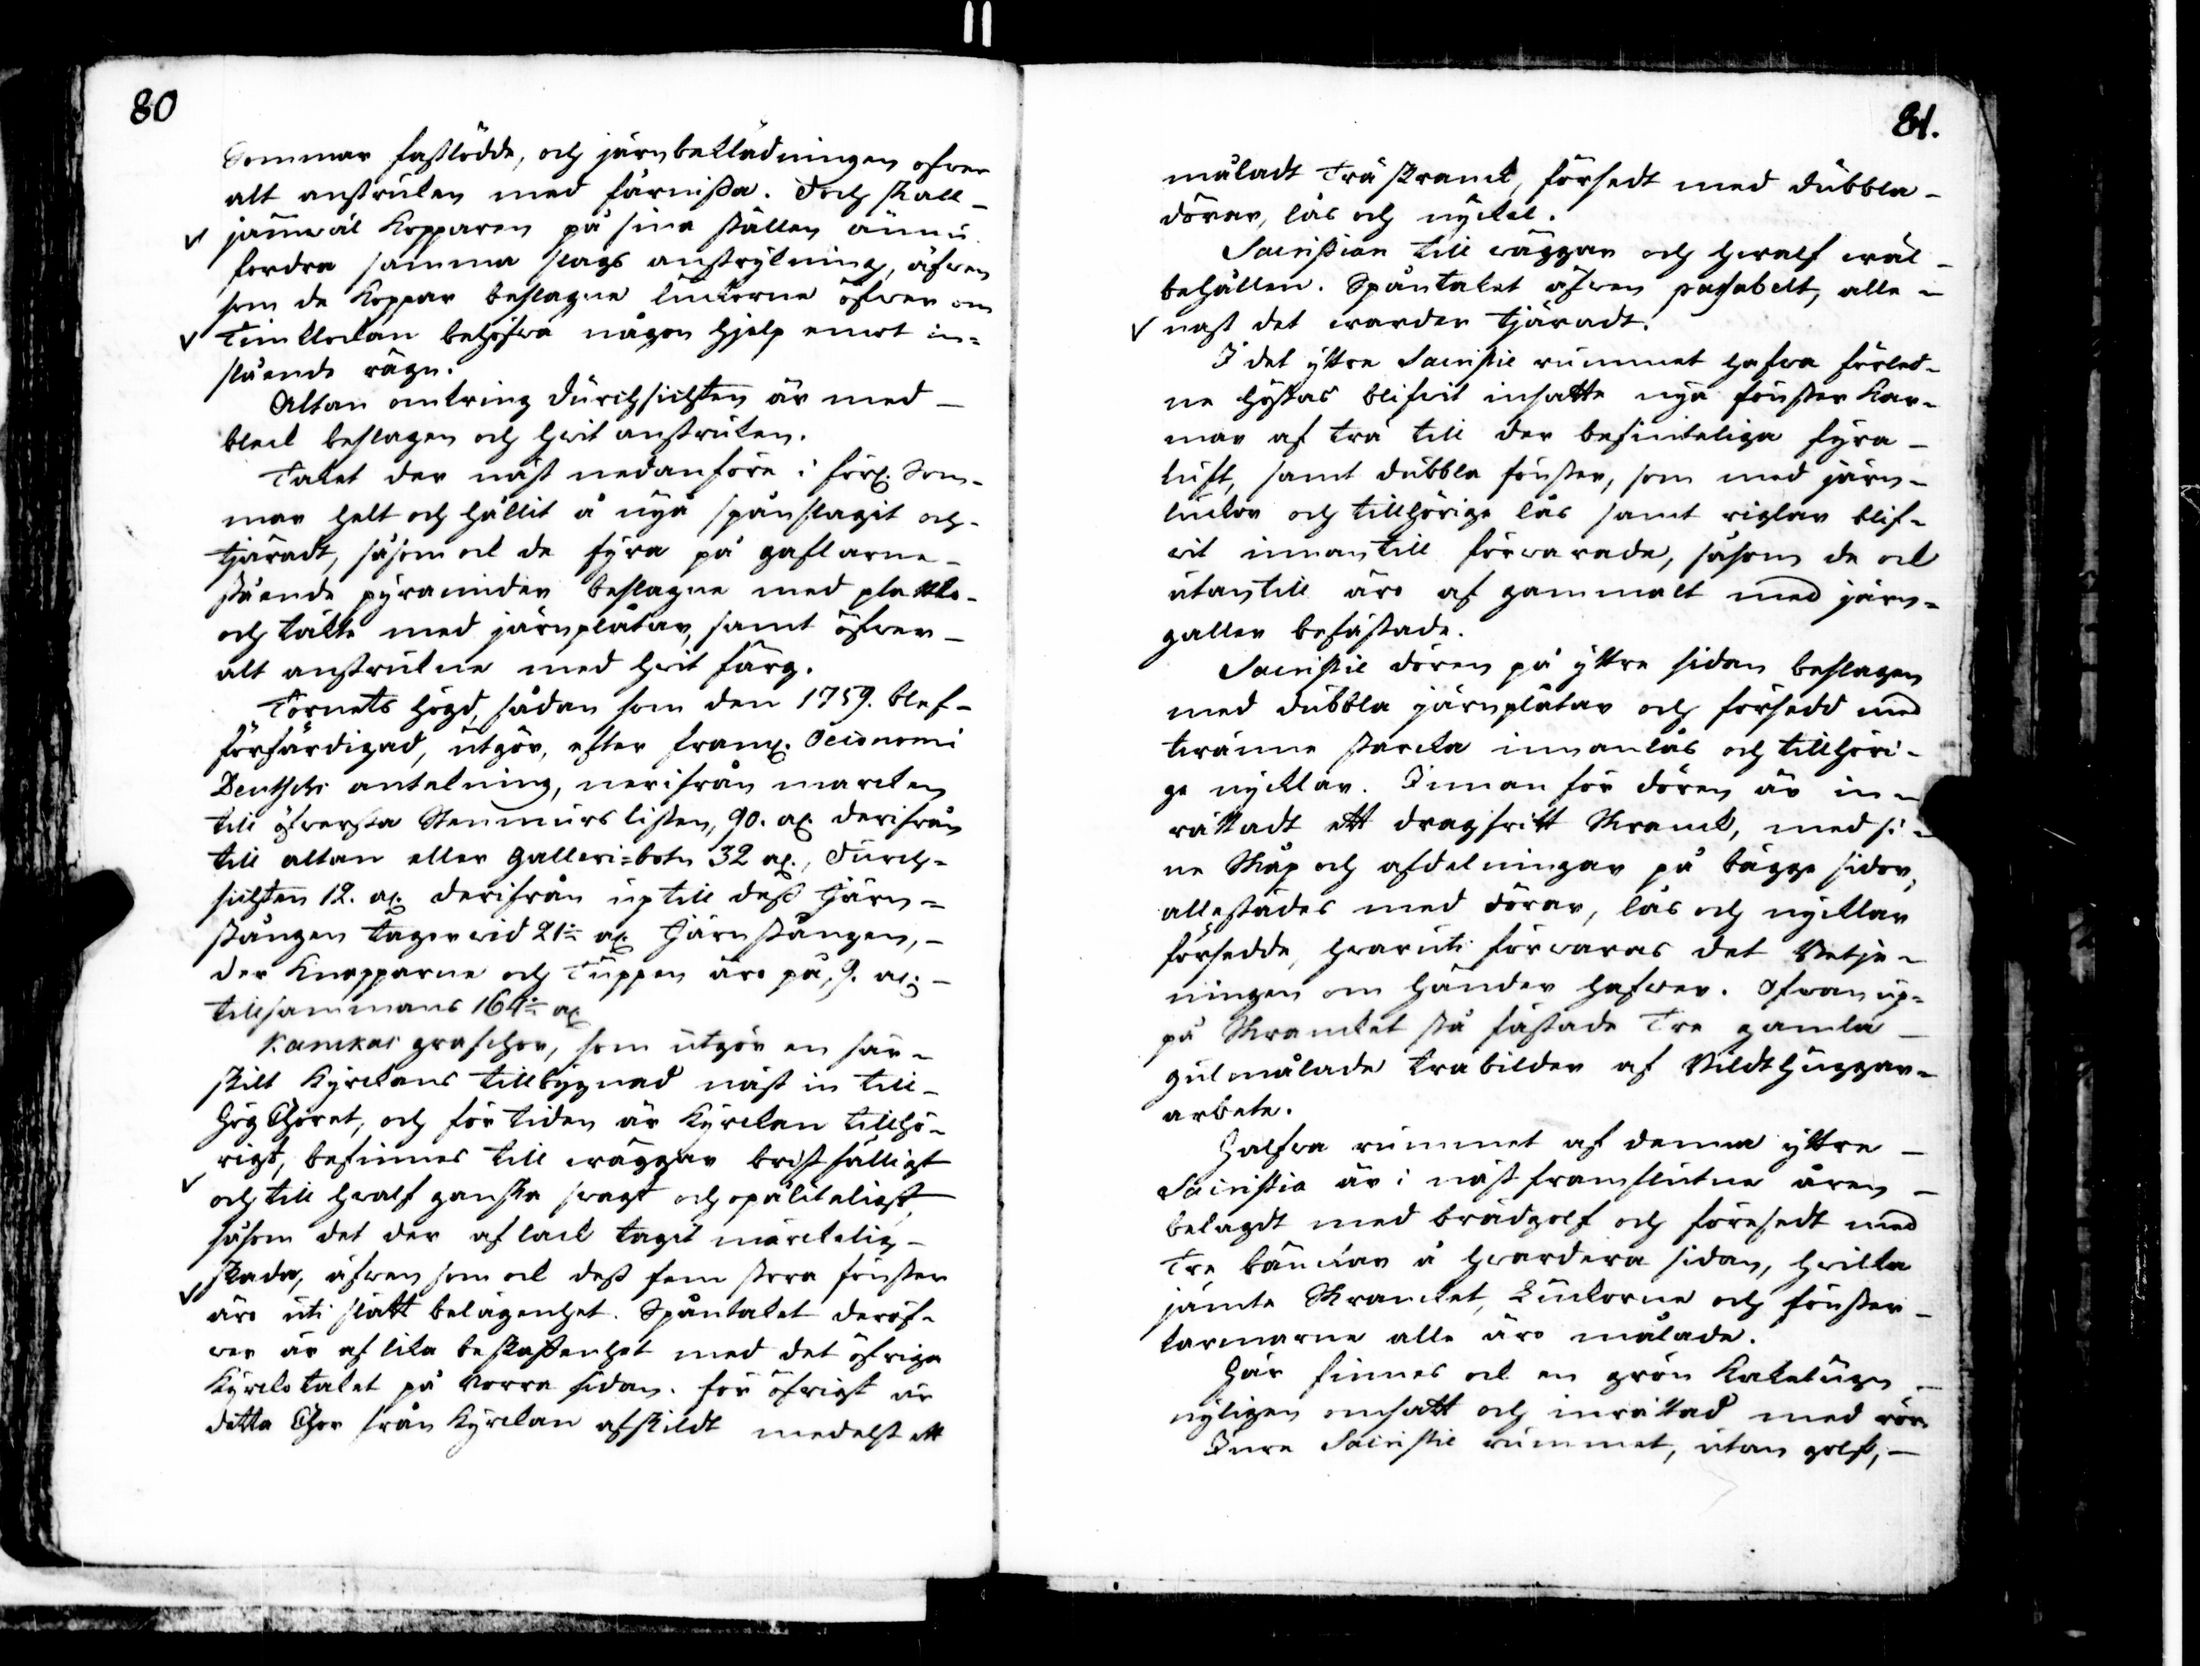 80
Sommar fastlödde, och järnbeklädningen ofwer
alt anstruken med färnissa. Doch skall
jämwäl Kopparen på sina ställen ännu
fordra samma slags anstrykning, äfwen
som de Koppar beslagne luckorne öfwer om
Timklockan behöfwa någon hjelp emot in-
slående rägn.
Altan omkring Durchsichten är med
bleck beslagen och hwit anstruken.
Taket der näst nedanföre i förl. Som-
mar helt och hållit å nyå spånslagit och
tjäradt, såsom ock de fyra på gaflarne
stående pyramider beslagne med plåtto-
och täckte med järnplåtar, samt öfwer-
alt anstrukne med hwit färg.
Tornets högd, sådan som den 1759. blef
förfärdigad, utgör, efter framl. Oeconomi
Deutschs antekning, nerifrån marcken
till öfwersta Stenmurs listen, 90. al. derifrån
till altan eller Galleri-botn 32 al., Durch-
sichten 12. al. derifrån up till dess Järn-
stången tager wid 21 al. Järnstången,
der Knapparne och Tuppen äro på, 9. al.
tillsammans 164 al.
Kamkas grafchor, som utgör en sär-
skilt Kyrckans tillbygnad näst in till
HögChoret, och för tiden är Kyrckan tillhö-
rigt, befinnes till wäggar bristfälligt
och till hwalf ganska swagt och opåliteligt,
såsom det der af läck tagit märckelig
skada, äfwen som ock dess fem stora fönster
äro uti slätt belägenhet. Spåntaket deröf-
wer är af lika beskaffenhet med det öfriga
Kyrcko taket på Norra sidan. för öfrigt är
detta Chor från Kyrckan afskildt medelst ett
81.
måladt Träskranck, försedt med dubbla
dörar, lås och nyckel.
Sacristian till wäggar och hwalf wäl
behållen. Spåntaket äfwen passabelt, alle-
nast det warder tjäradt.
I det yttre Sacristie rummet hafwa förled-
ne höstas blifwit insatte nya fönster Kar-
mar af trä till der befinteliga fyra
luft, samt dubbla fönster, som med järn-
luckor och tillhörige lås samt riglar blif-
wit innantill förwarade, såsom de ock
utantill äro af gammalt med järn-
galler befästade.
Sacristie dören på yttre sidan beslagen
med dubbla järnplåtar och försedd med
twänne starcka innanlås och tillhöri-
ge nycklar. Innan för dören är in-
rättadt ett dragfritt Skranck, med si-
ne Skåp och afdelningar på bägge sidor,
allestädes med dörar, lås och nycklar
försedde, hwaruti förwaras det Betje-
ningen om händer hafwer. Ofwan up-
på Skrancket stå fästade Tre gamla
gulmålade träbilder af Bildthuggar-
arbete.
Halfwa rummet af denna yttre
Sacristia är i näst framflutne åren
belagdt med brädgolf och föresedt med
Tre bänckar å hwardera sidan, hwilka
jämte Skrancket, Luckorne och fönster
karmarne alle äro målade.
Här finnes ock en grön Kakelugn
nyligen omsatt och inrättad med rör.
Inre Sacristie rummet, utan golf,